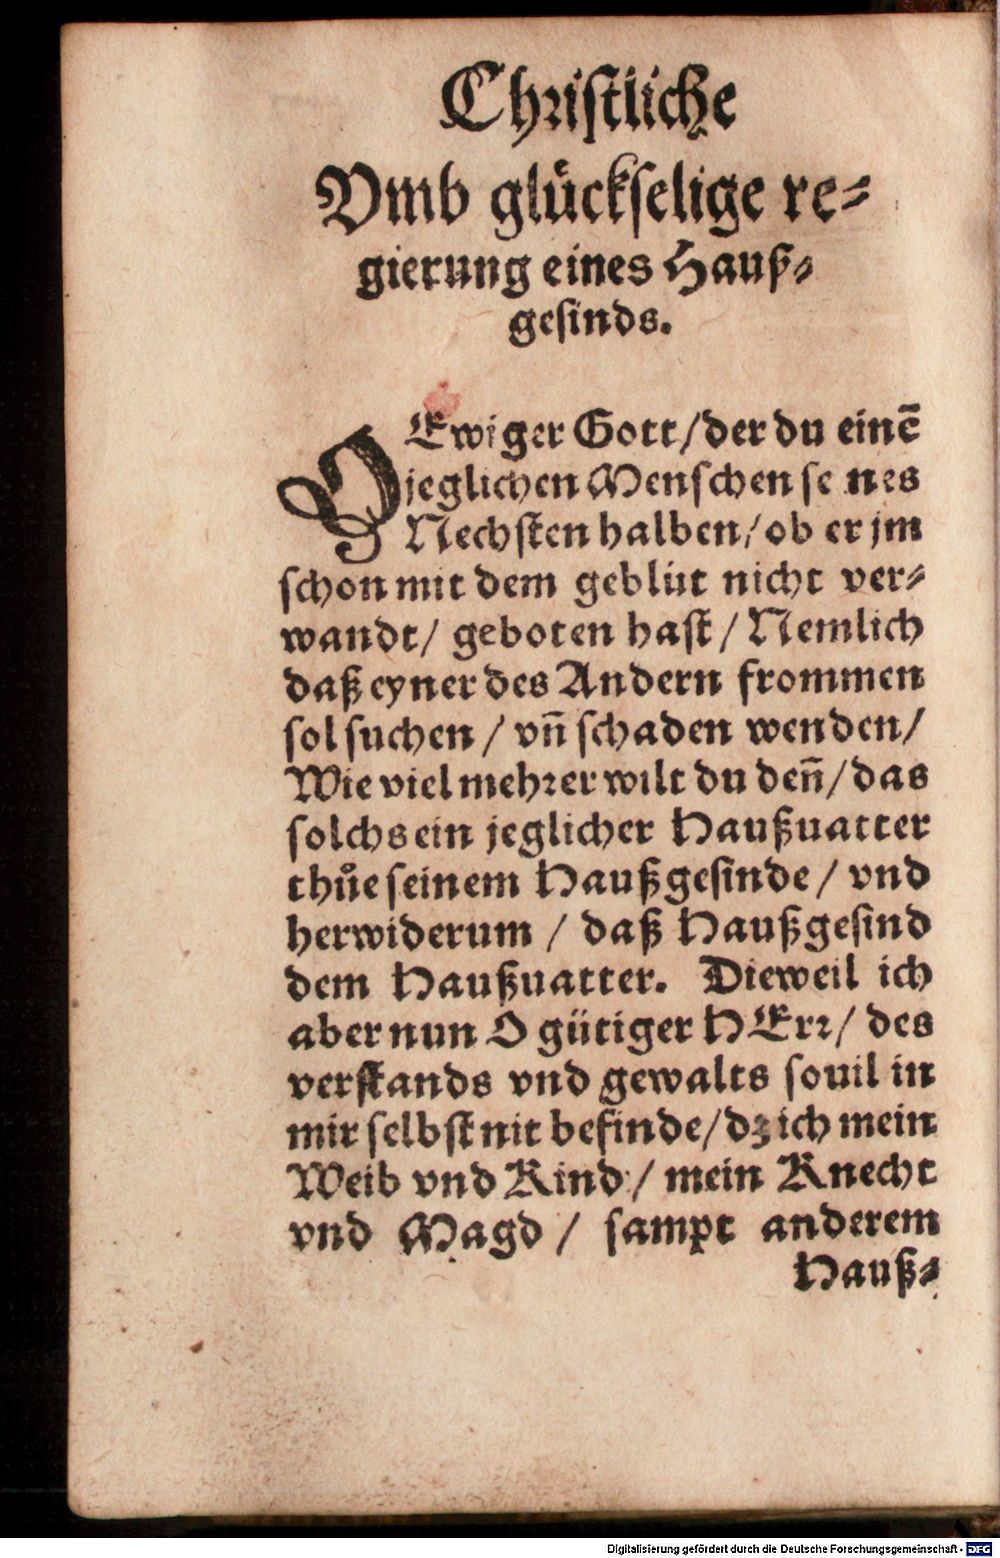 Christliche
Vmb glückselige re-
gierung eines Hauß-
gesinds.
O Ewiger Gott/der du einē
jeglichen Menschen se nes
Nechsten halben/ob er jm
schon mit dem geblüt nicht ver-
wandt/ geboten hast/ Nemlich
daß eyner des Andern frommen
sol suchen / vñ schaden wenden/
Wie viel mehrer wilt du deñ/das
solchs ein jeglicher Haußuatter
thůe seinem Haußgesinde/ vnd
herwiderum / daß Haußgesind
dem Haußuatter. Dieweil ich
aber nun O gütiger HErr/ des
verstands vnd gewalts souil in
mir selbst nit befinde/dz ich mein
Weib vnd Kind/ mein Knecht
vnd Magd / sampt anderem
Hauß-
Digitalisierung gefördert durch die Deutsche Forschungsgemeinschaft - DFG